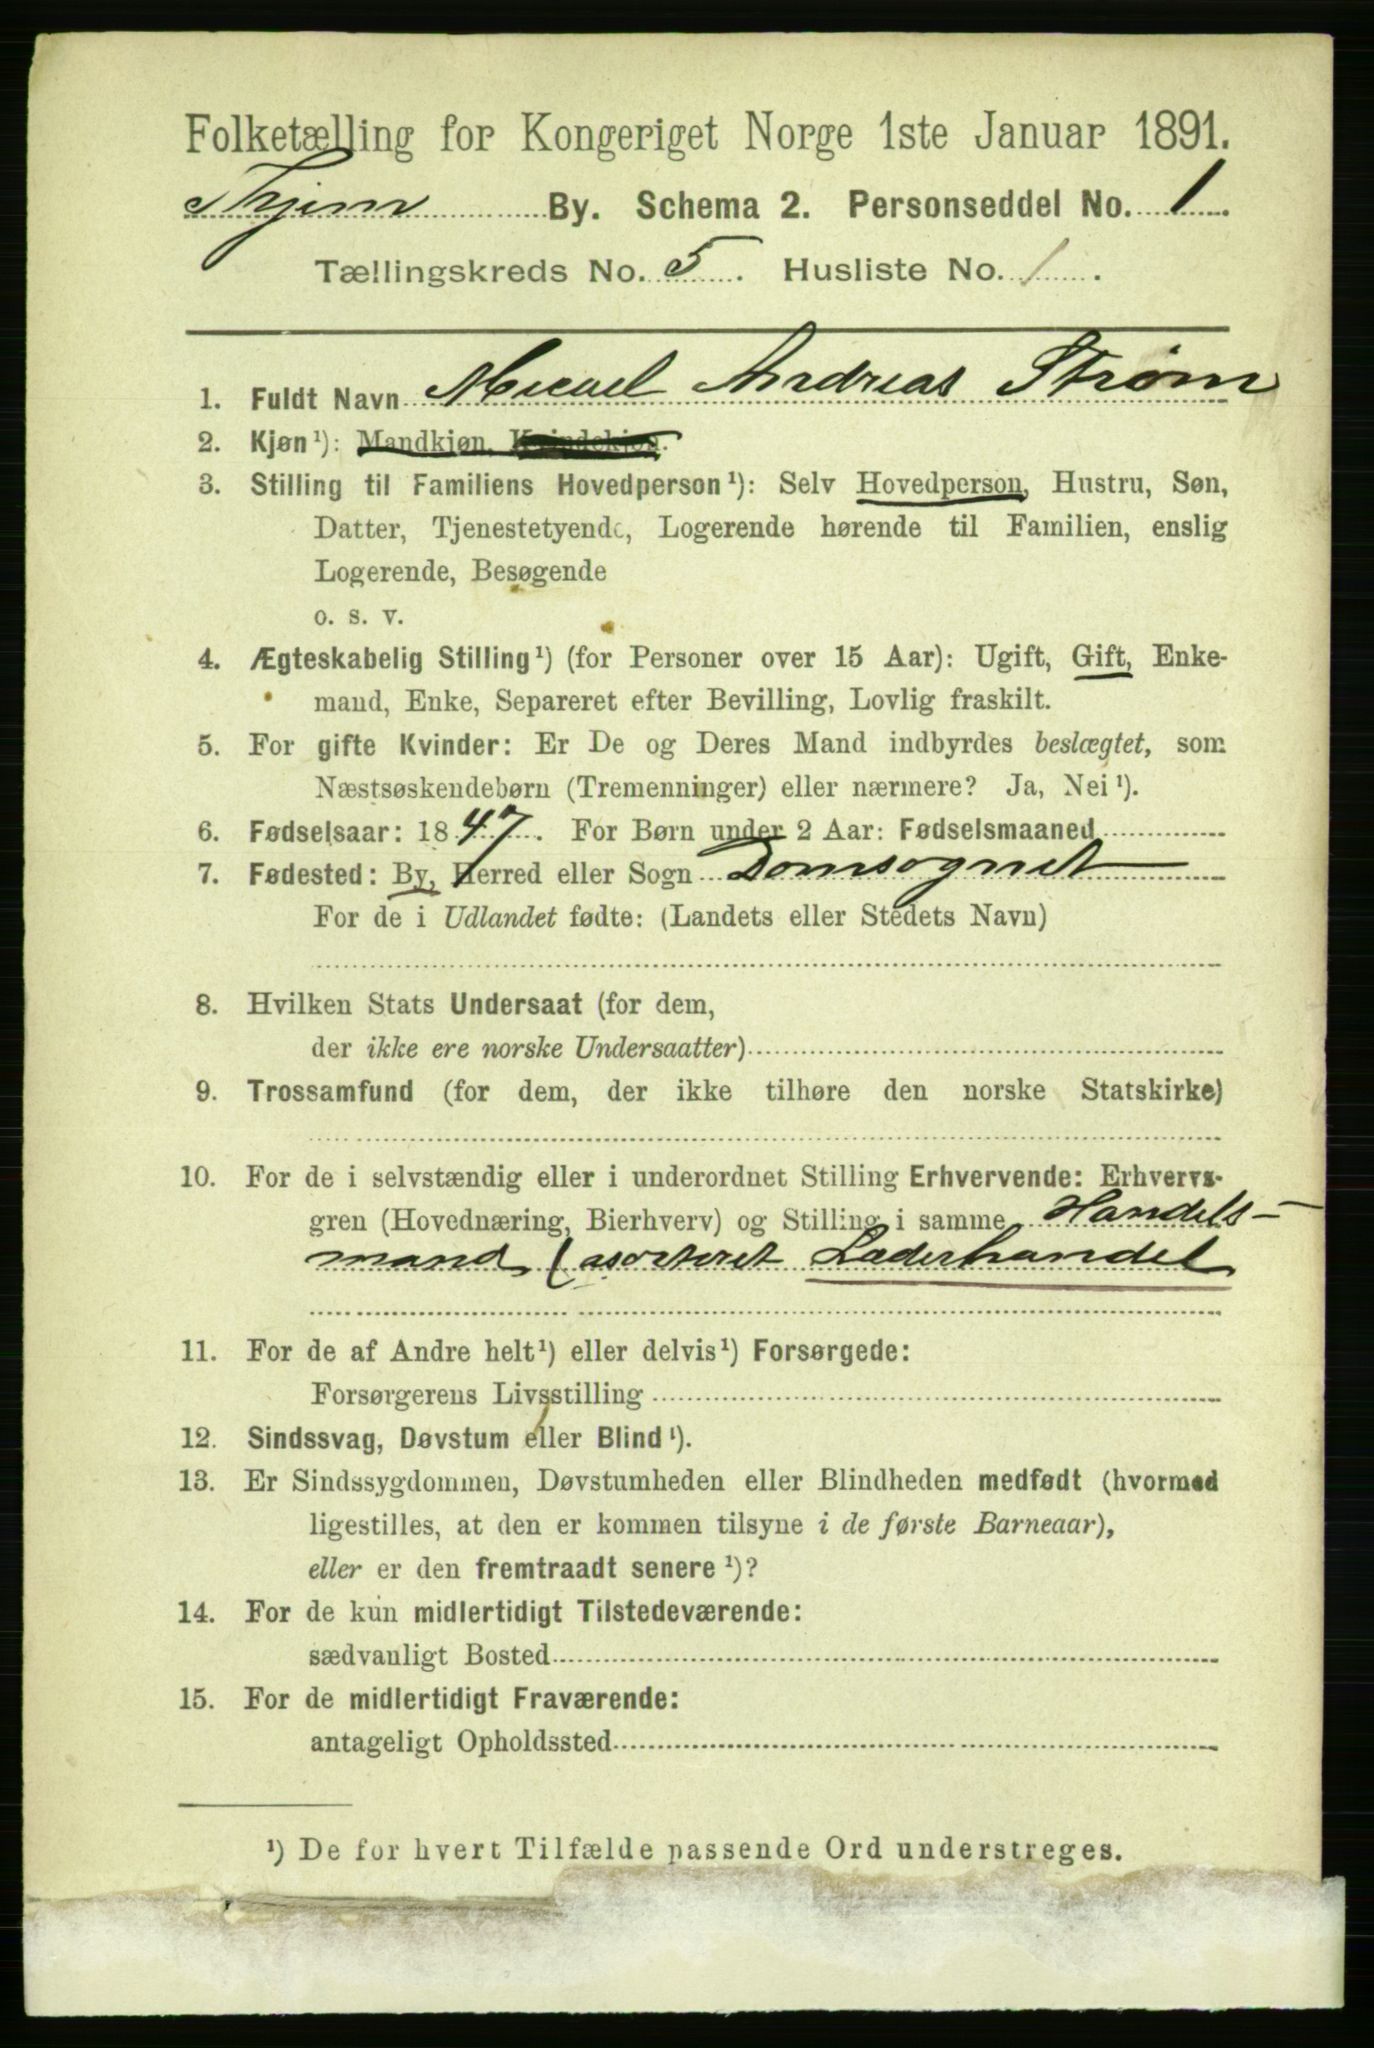 Folketælling for Kongeriget Norge 1ste Januar 1891.
Thjem By. Schema 2. Personseddel No. 1.
Tællingskreds No. 5. Husliste No. 1.
1. Fuldt Navn Micael Andreas Strøm
2. Kjøn¹): Mandkjøn, Kvindekjøn.
3. Stilling til Familiens Hovedperson¹): Selv Hovedperson, Hustru, Søn,
Datter, Tjenestetyende, Logerende hørende til Familien, enslig
Logerende, Besøgende
o. s. v.
4. Ægteskabelig Stilling¹) (for Personer over 15 Aar): Ugift, Gift, Enke-
mand, Enke, Separeret efter Bevilling, Lovlig fraskilt.
5. For gifte Kvinder: Er De og Deres Mand indbyrdes beslægtet, som
Næstsøskendebørn (Tremenninger) eller nærmere? Ja, Nei¹).
6. Fødselsaar: 1847. For Børn under 2 Aar: Fødselsmaaned
7. Fødested: By, Herred eller Sogn Domsognet
For de i Udlandet fødte: (Landets eller Stedets Navn)
8. Hvilken Stats Undersaat (for dem,
der ikke ere norske Undersaatter)
9. Trossamfund (for dem, der ikke tilhøre den norske Statskirke)
10. For de i selvstændig eller i underordnet Stilling Erhvervende: Erhvervs-
gren (Hovednæring, Bierhverv) og Stilling i samme Handels-
mand (asorteret Læderhandel
11. For de af Andre helt¹) eller delvis¹) Forsørgede:
Forsørgerens Livsstilling
12. Sindssvag, Døvstum eller Blind¹).
13. Er Sindssygdommen, Døvstumheden eller Blindheden medfødt (hvormed
ligestilles, at den er kommen tilsyne i de første Barneaar),
eller er den fremtraadt senere¹)?
14. For de kun midlertidigt Tilstedeværende:
sædvanligt Bosted
15. For de midlertidigt Fraværende:
antageligt Opholdssted
¹) De for hvert Tilfælde passende Ord understreges.